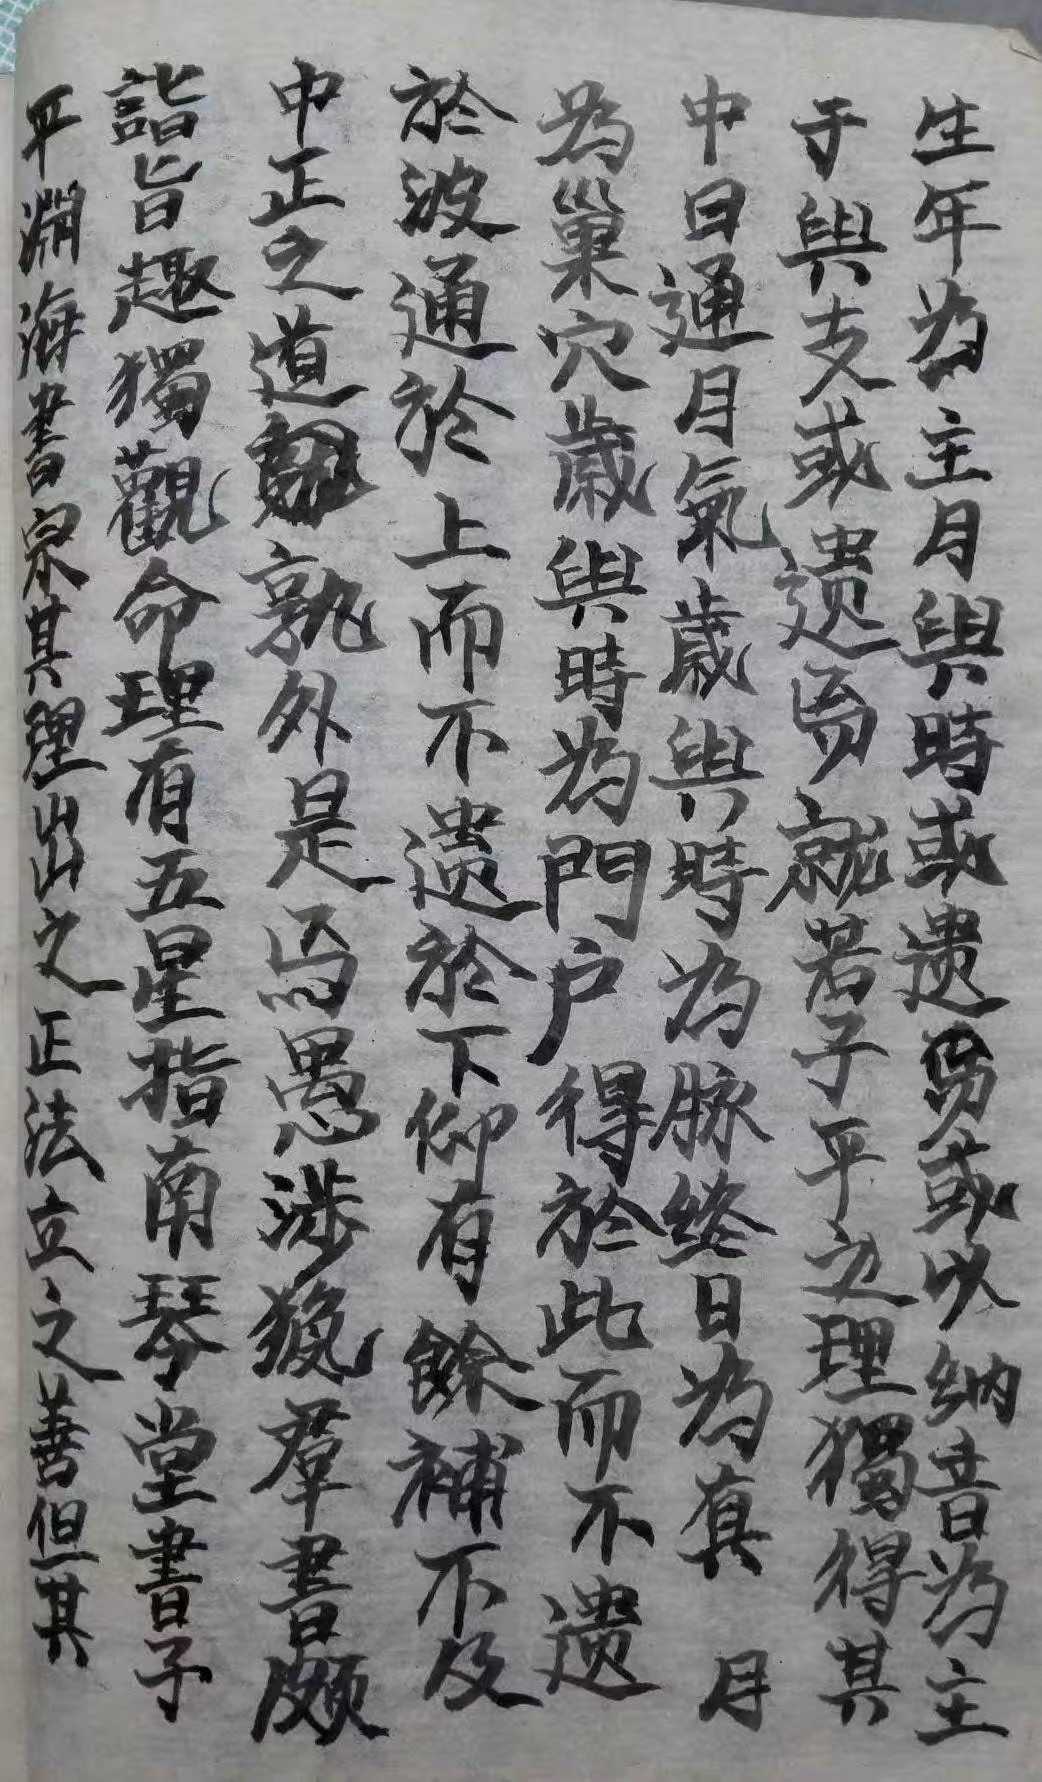 生年為主月與時或遗焉或以納音為主
于與支或遗焉就若子平之理獨得其
中日通月氣歲與時為脉絡日為真月
為巢穴歲與時為門户得於此而不遗
於波通於上而不遗於下仰有餘補不及
中正之道孰外是焉愚涉獵羣書頗
詣旨趣獨觀命理有五星指南琴堂書子
平淵海書宗其理出之正法立之善但其